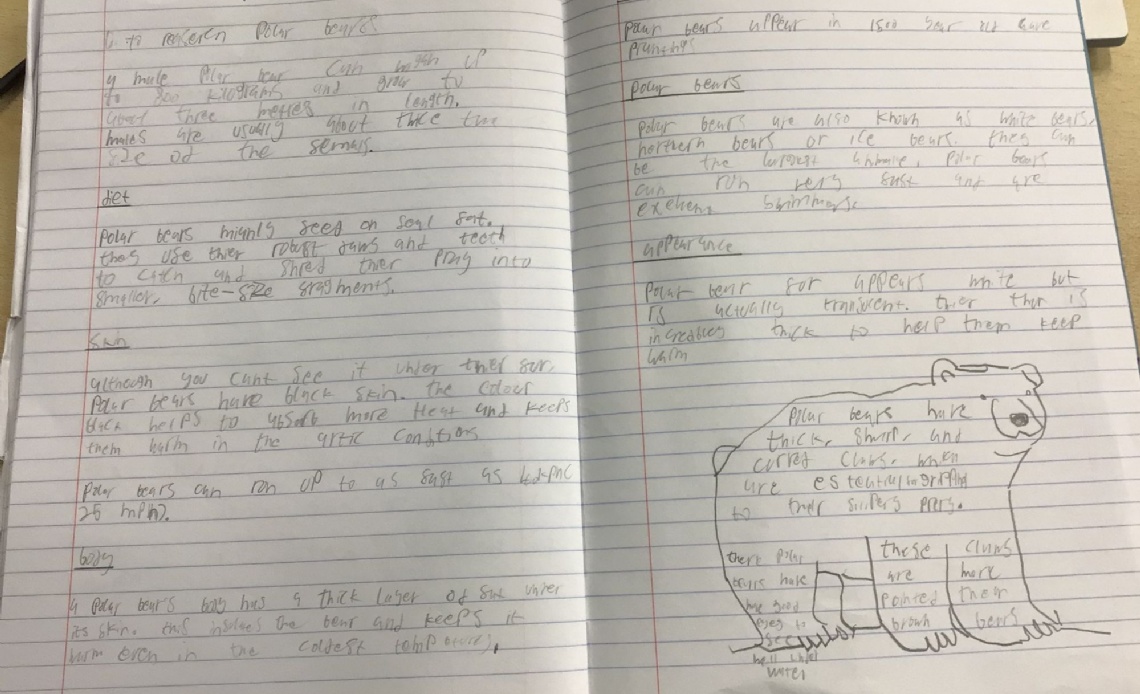 Polar bears
a male Polar bear can weigh up
to 800 kilograms and grow to
about three metres in length.
males are usually about twice the
size of the
diet
Polar bears mianly feed on seal fat.
they use thier robust Jaws and teeth
to catch and shred thier pray into
smaller, bite-size fragments.
Skin
although you cant see it under thier fur,
Polar bears have black skin. the colour
black helps to absorb more Heat and keeps
them warm in the artic
Polar bears can run up to as fast as
25 mph).
body
a Polar bear's body has a thick layer of fat under
its skin. this the bear and keeps it
warm even in the coldest
Polar bears appear in 1500 year
Polar bears
Polar bears are also known as white bears,
northern bears or ice bears. they can
be the largest Polar bears
can run very fast and are
swimmers.
appearance
Polar bear fur appears white but
is actually thier is
thick to help them keep
warm
Polar bears have
thick, sharp, and
claws, which
are
to their
there Polar
bears have
good
eyes to
see
well under
water
these
are
pointed
brown
claws
more
then
bears